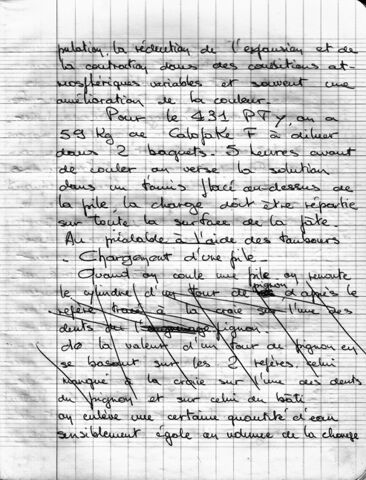 pulation, la réduction de l'expansion et de
la contraction dans des conditions at-
mosphériques variables et souvent une
amélioration de la couleur.
Pour le 431 PTy, on a
59 Kg de Calofake F à diluer
dans 2 baquets. 5 heures avant
de couler on verse la solution
dans un tamis placé au-dessus de
la pile, la charge doit être répartie
sur toute la surface de la pâte.
Au préalable à l'aide des tambours
- Chargement d'une pile -
Quand on coule une pile on remonte
le cylindre d'un tour de pignon d'après le
repère tracé à la craie sur l'une des
dents du pignon.
de la valeur d'un tour de pignon en
se basant sur les 2 repères, celui
marqué à la craie sur l'une des dents
du pignon et sur celui du bâti
on enlève une certaine quantité d'eau
sensiblement égale au volume de la charge